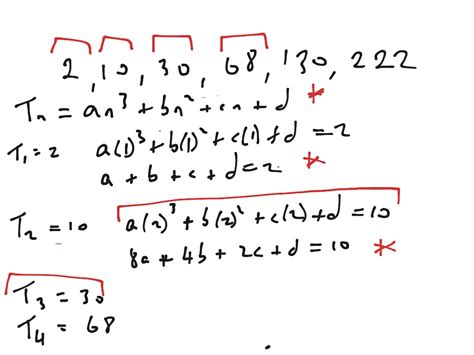 2, 10, 30, 68, 130, 222
Tₙ = an³ + bn² + cn + d *
T₁ = 2 a(1)³ + b(1)² + c(1) + d = 2
a + b + c + d = 2 *
T₂ = 10 a(2)³ + b(2)² + c(2) + d = 10
8a + 4b + 2c + d = 10 *
T₃ = 30
T₄ = 68